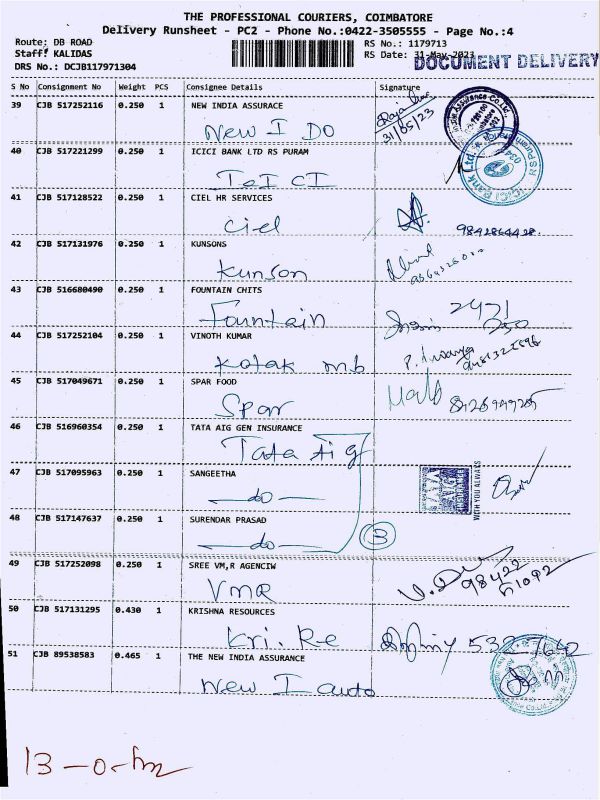 THE PROFESSIONAL COURIERS, COIMBATORE
Delivery Runsheet - PC2 - Phone No.:0422-3505555 - Page No.:4
Route: DB ROAD RS No.: 1179713
Staff: KALIDAS RS Date: 31-May-2023
DRS No.: DCJB117971304 DOCUMENT DELIVERY
S No Consignment No Weight PCS Consignee Details Signature
39 CJB 517252116 0.250 1 NEW INDIA ASSURACE
New I DO 31/05/23
40 CJB 517221299 0.250 1 ICICI BANK LTD RS PURAM
41 CJB 517128522 0.250 1 CIEL HR SERVICES
Ciel 9842864428
42 CJB 517131976 0.250 1 KUNSONS
Kunson
43 CJB 516680490 0.250 1 FOUNTAIN CHITS
Fountain
44 CJB 517252104 0.250 1 VINOTH KUMAR
Kotak mb
45 CJB 517049671 0.250 1 SPAR FOOD
Spar
46 CJB 516960354 0.250 1 TATA AIG GEN INSURANCE
Tata Aig
47 CJB 517095963 0.250 1 SANGEETHA
—do— WITH YOU ALWAYS
48 CJB 517147637 0.250 1 SURENDAR PRASAD
—do— 3
49 CJB 517252098 0.250 1 SREE VM,R AGENCIW
VMR
50 CJB 517131295 0.430 1 KRISHNA RESOURCES
Kri. Re
51 CJB 89538583 0.465 1 THE NEW INDIA ASSURANCE
New I auto